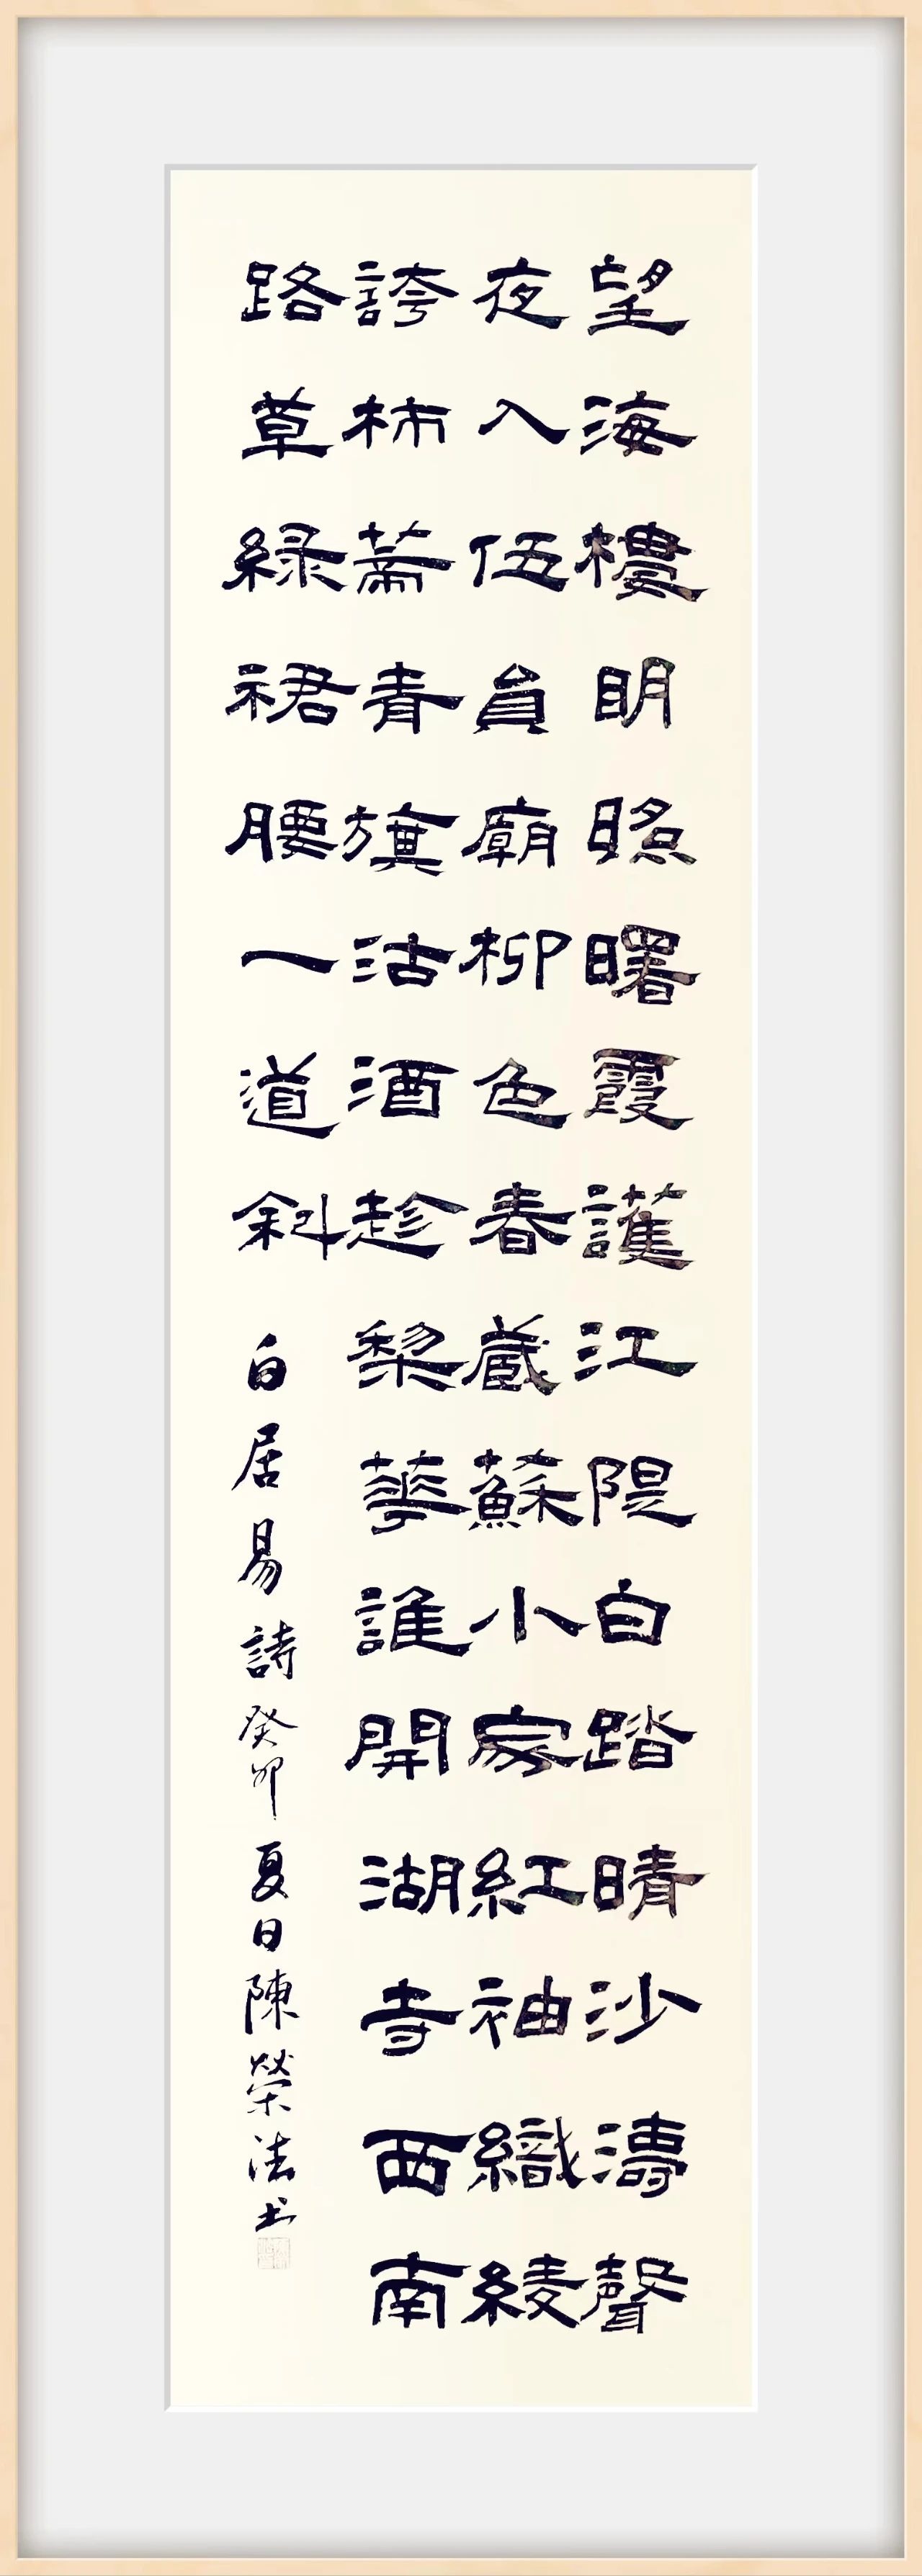 望海樓明照曙霞護江隄白踏晴沙濤聲
夜入伍員廟柳色春藏蘇小家紅袖織綾
誇柿蔕青旗沽酒趁梨華誰開湖寺西南
路草綠裙腰一道斜
白居易詩癸卯夏日陳榮法书